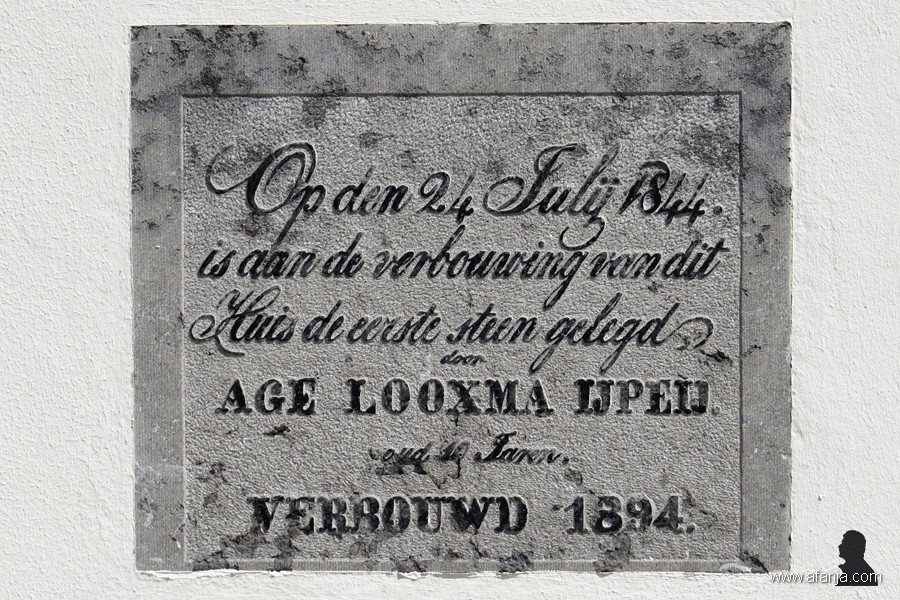 Op den 24 Julij 1844.
is aan de verbouwing van dit
Huis de eerste steen gelegd
door
AGE LOOXMA IJPEIJ.
oud Jaren.
VERBOUWD 1894.
www.afanja.com